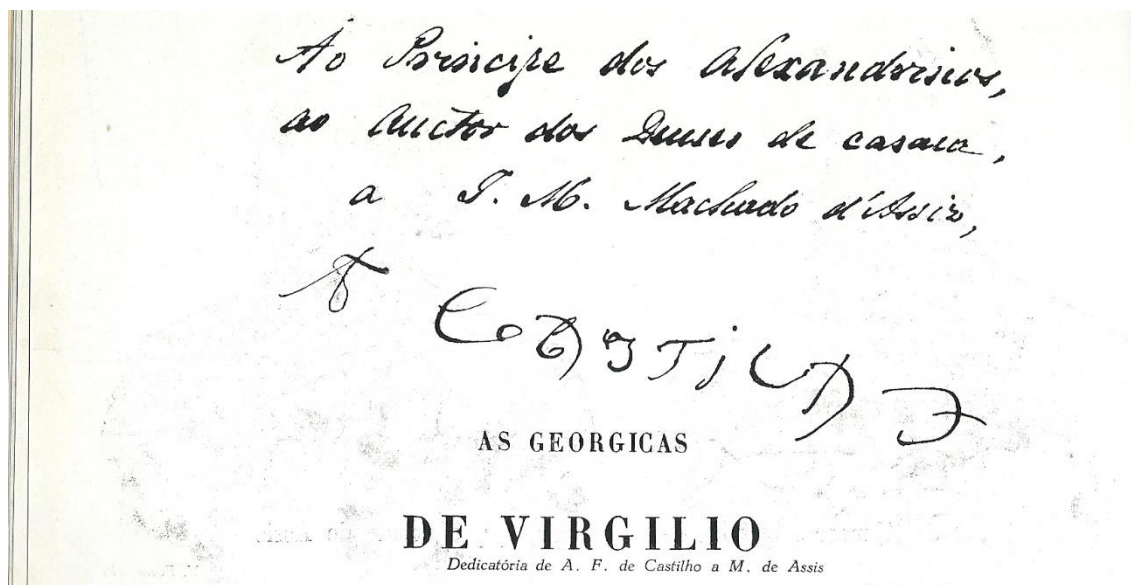 Ao Principe dos Alexandrinos,
ao Auctor dos Deuses de casaca,
a J. M. Machado d'Assis,
A Castilho
AS GEORGICAS
DE VIRGILIO
Dedicatória de A. F. de Castilho a M. de Assis